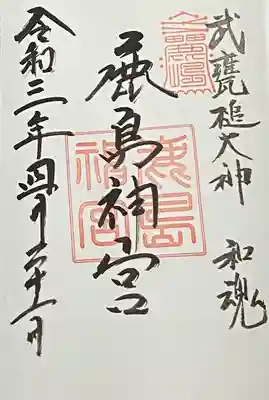 武甕槌大神 和魂
鹿島神宮
鹿島神宮
令和三年四月二十一日